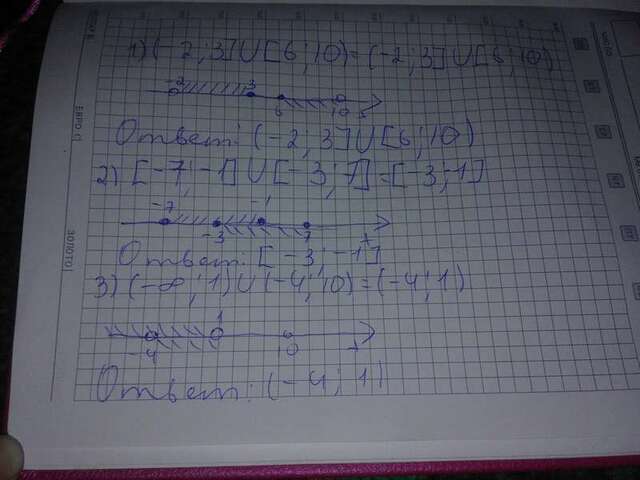 1) (-2; 3] U [6; 10) = (-2; 3] U [6; 10)
-2 3
6 10 x
Ответ: (-2; 3] U [6; 10)
2) [-7; -1] U [-3; 7] = [-3; -1]
-7 -1
-3 7 x
Ответ: [-3; -1]
3) (-∞; 1) U (-4; 10) = (-4; 1)
1
-4 10 x
Ответ: (-4; 1)
ЗОЛОТО
ЕВРО